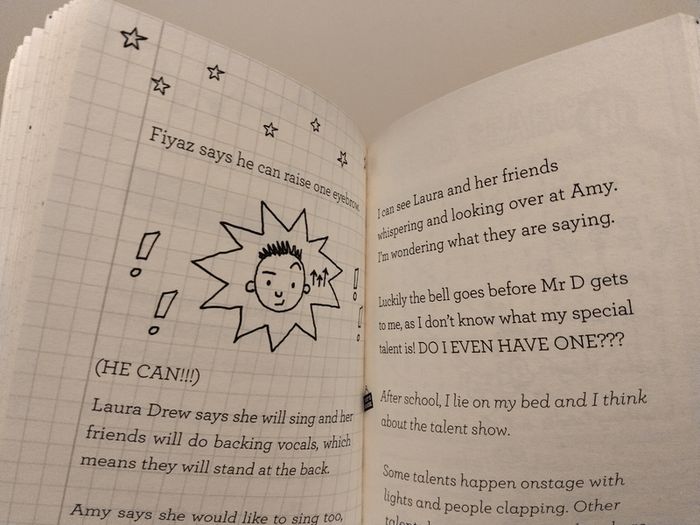 Fiyaz says he can raise one eyebrow.
(HE CAN!!!)
Laura Drew says she will sing and her
friends will do backing vocals, which
means they will stand at the back.
Amy says she would like to sing too,
I can see Laura and her friends
whispering and looking over at Amy.
I'm wondering what they are saying.
Luckily the bell goes before Mr D gets
to me, as I don't know what my special
talent is! DO I EVEN HAVE ONE???
After school, I lie on my bed and I think
about the talent show.
Some talents happen onstage with
lights and people clapping. Other